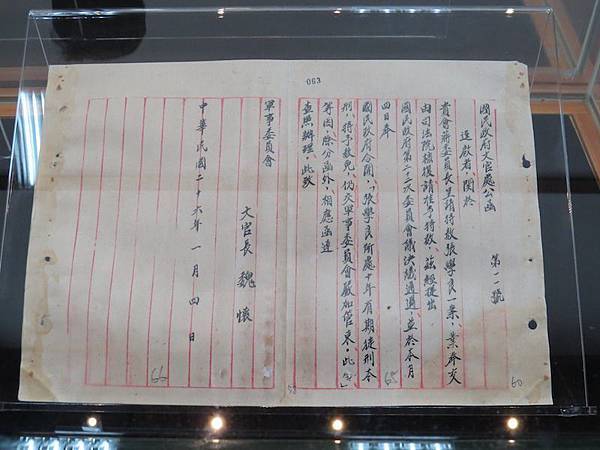 063
國民政府文官處公函 第二號
逕啟者，關於
貴會蔣委員長呈請特赦張學良一案，業奉交
由司法院核復請准予特赦，茲經提出
國民政府第二十次委員會議決議通過，並於本月
四日奉
國民政府令開：「張學良所處十年有期徒刑本
刑，特予赦免，仍交軍事委員會嚴加管束。此令」
等因，除分函外，相應函達
查照辦理。此致
軍事委員會
文官長 魏懷
中華民國二十六年一月四日
60
65
66